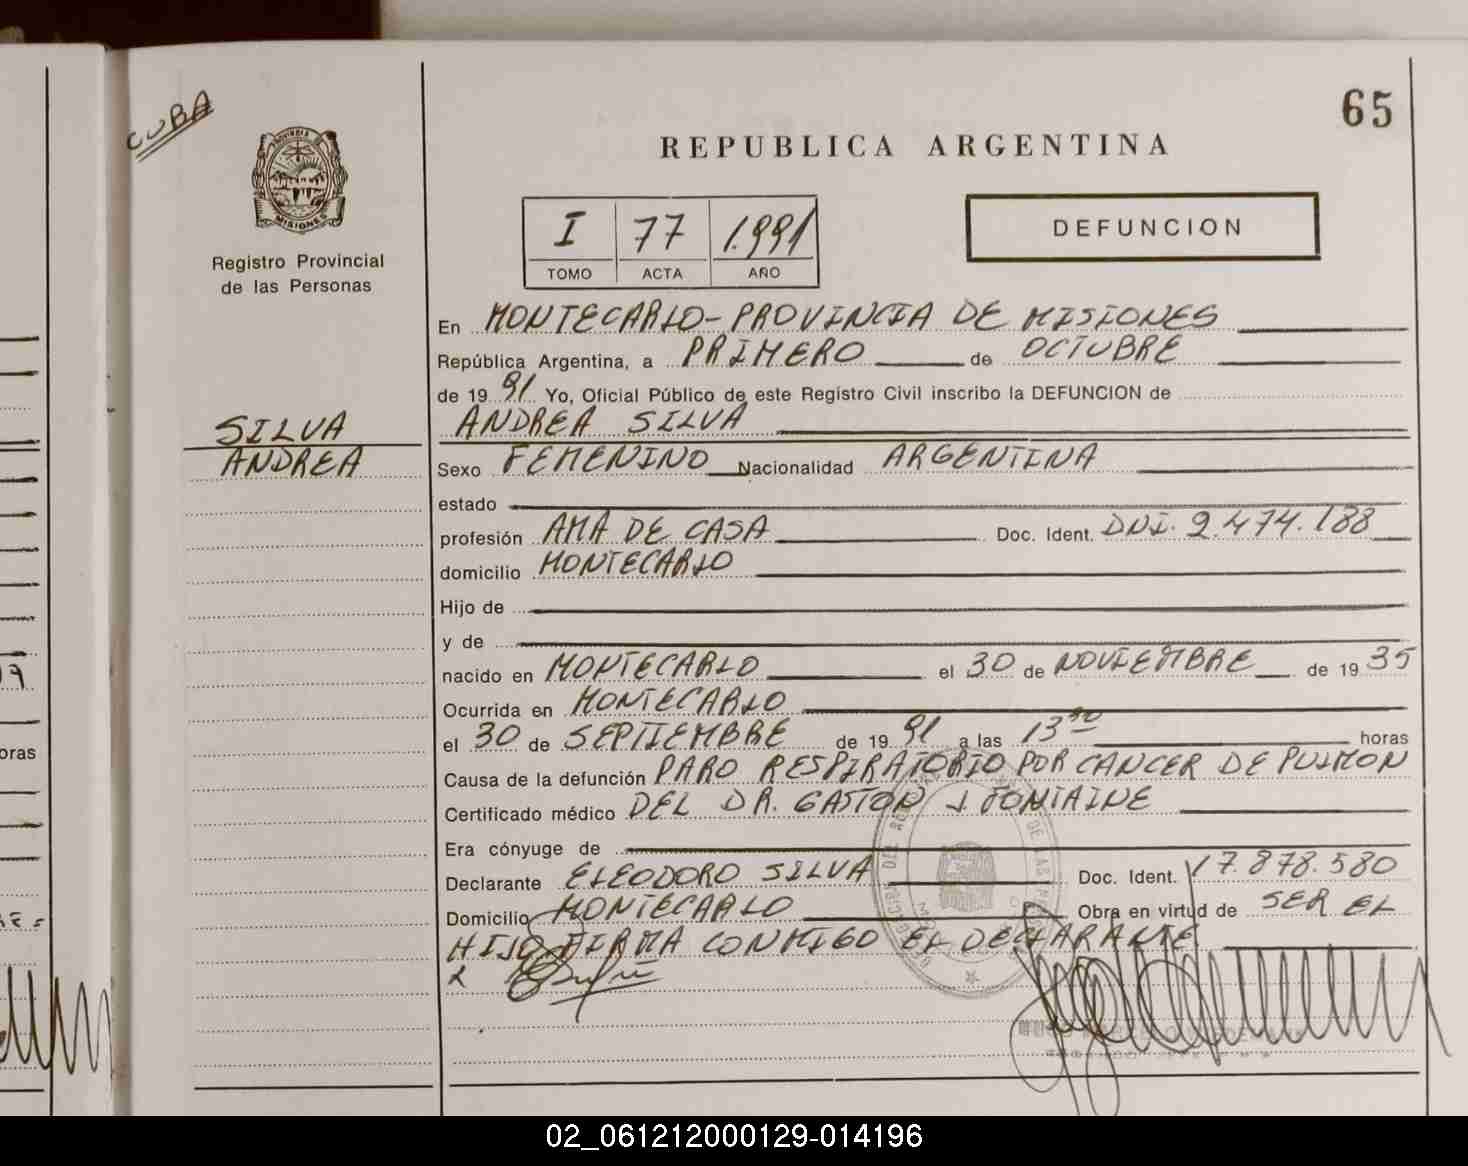 CUBA
65
PROVINCIA
MISIONES
REPUBLICA ARGENTINA
Registro Provincial
de las Personas
I 77 1.991
TOMO ACTA AÑO
DEFUNCION
En MONTECARLO - PROVINCIA DE MISIONES
República Argentina, a PRIMERO de OCTUBRE
de 19 91 Yo, Oficial Público de este Registro Civil inscribo la DEFUNCION de
SILVA
ANDREA
ANDREA SILVA
Sexo FEMENINO Nacionalidad ARGENTINA
estado
profesión AMA DE CASA Doc. Ident. DNI. 2.474.188
domicilio MONTECARLO
Hijo de
y de
nacido en MONTECARLO el 30 de NOVIEMBRE de 19 35
Ocurrida en MONTECARLO
el 30 de SEPTIEMBRE de 19 91 a las 13 horas
Causa de la defunción PARO RESPIRATORIO POR CANCER DE PULMON
Certificado médico DEL DR. GASTON J FONTAINE
Era cónyuge de
Declarante ELEODORO SILVA Doc. Ident. 17.878.580
Domicilio MONTECARLO Obra en virtud de SER EL
HIJO FIRMA CONMIGO EL DECLARANTE
oras
02_061212000129-014196